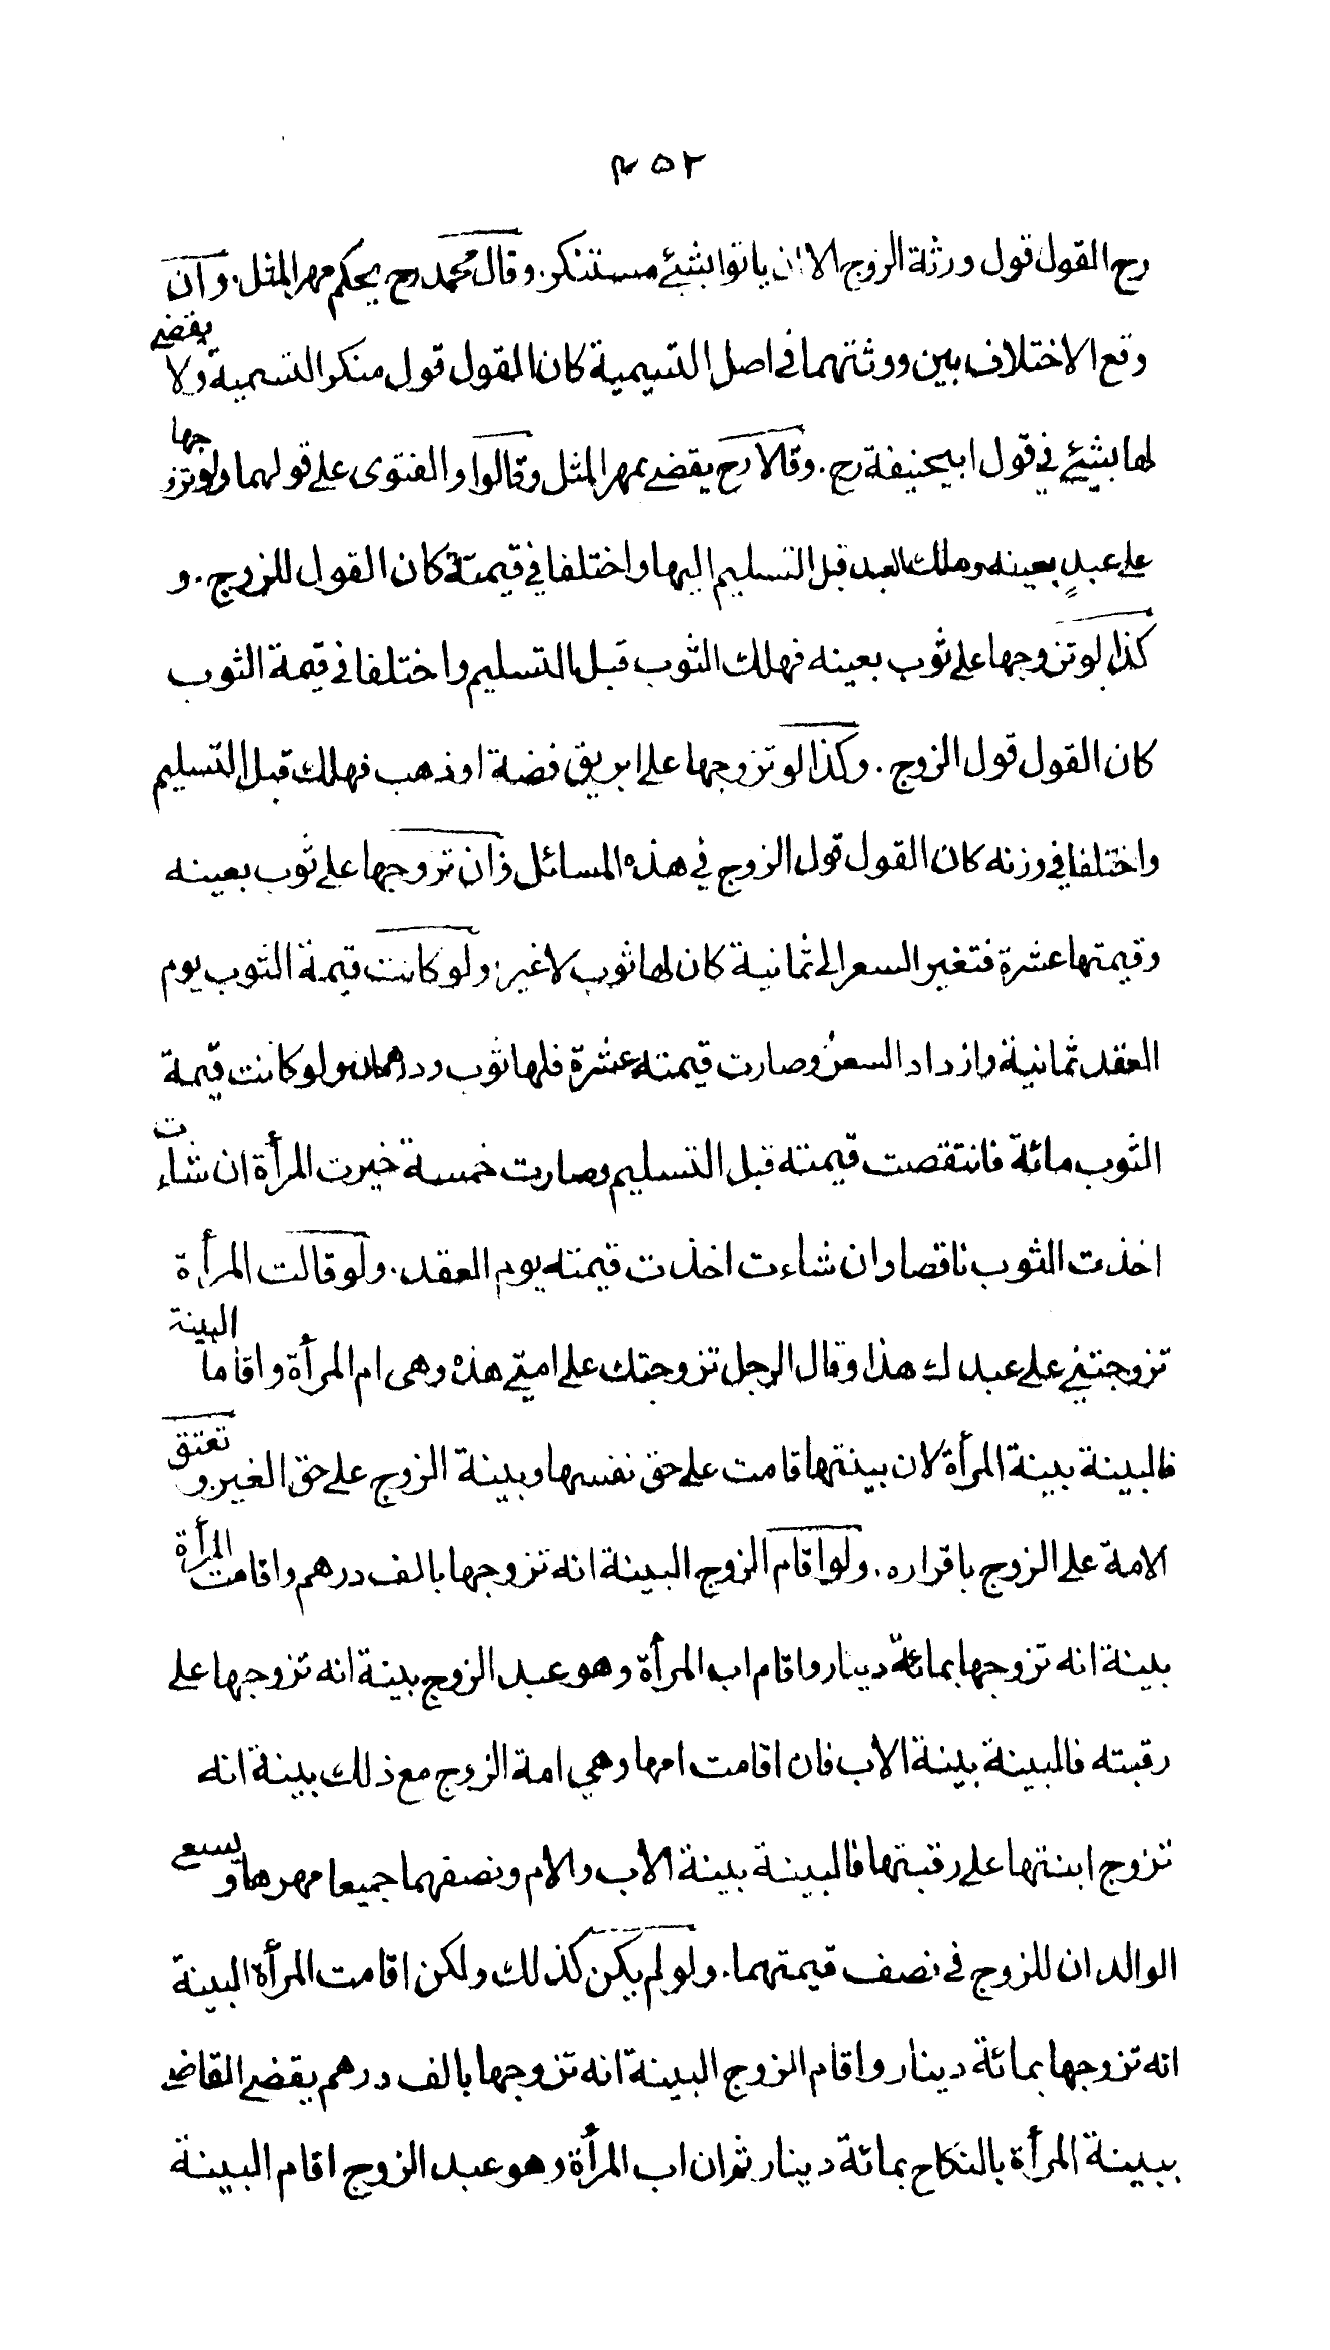 ۴۵۲
رح القول قول ورثة الزوج الا ان ياتوا بشئ مستنكر. وقال محمد رح يحكم مهر المثل. وان
وقع الاختلاف بين ورثتهما في اصل التسمية كان القول قول منكر التسمية ولا يقضے
لها بشئ في قول ابيحنيفة رح. وقالا رح يقضے بمهر المثل وقالوا والفتوى على قولهما ولو تزوجها
على عبدٍ بعينه وهلك العبد قبل التسليم اليها واختلفا في قيمته كان القول للزوج. و
كذا لو تزوجها على ثوب بعينه فهلك الثوب قبل التسليم واختلفا في قيمة الثوب
كان القول قول الزوج. وكذا لو تزوجها على ابريق فضة او ذهب فهلك قبل التسليم
واختلفا في وزنه كان القول قول الزوج في هذه المسائل وان تزوجها على ثوب بعينه
وقيمتها عشرة فتغير السعر الى ثمانية كان لها ثوب لا غير. ولو كانت قيمة الثوب يوم
العقد ثمانية وازداد السعر وصارت قيمته عشرة فلها ثوب ودرهمان ولو كانت قيمة
الثوب مائة فانتقصت قيمته قبل التسليم وصارت خمسة خيرت المرأة ان شاءت
اخذت الثوب ناقصا وان شاءت اخذت قيمته يوم العقد. ولو قالت المرأة
تزوجتني على عبدك هذا وقال الرجل تزوجتك على امتي هذه وهى ام المرأة واقاما البينة
فالبينة بينة المرأة لان بينتها قامت على حق نفسها وبينة الزوج على حق الغير و تعتق
الامة على الزوج باقراره. ولو اقام الزوج البينة انه تزوجها بالف درهم واقامت المرأة
بينة انه تزوجها بمائة دينار واقام اب المرأة وهو عبد الزوج بينة انه تزوجها على
رقبته فالبينة بينة الاب فان اقامت امها وهي امة الزوج مع ذلك بينة انه
تزوج ابنتها على رقبتها فالبينة بينة الاب والام ونصفهما جميعا مهرها ويسع
الوالدان للزوج في نصف قيمتهما. ولو لم يكن كذلك ولكن اقامت المرأة البينة
انه تزوجها بمائة دينار واقام الزوج البينة انه تزوجها بالف درهم يقضے القاضے
ببينة المرأة بالنكاح بمائة دينار ثم ان اب المرأة وهو عبد الزوج اقام البينة